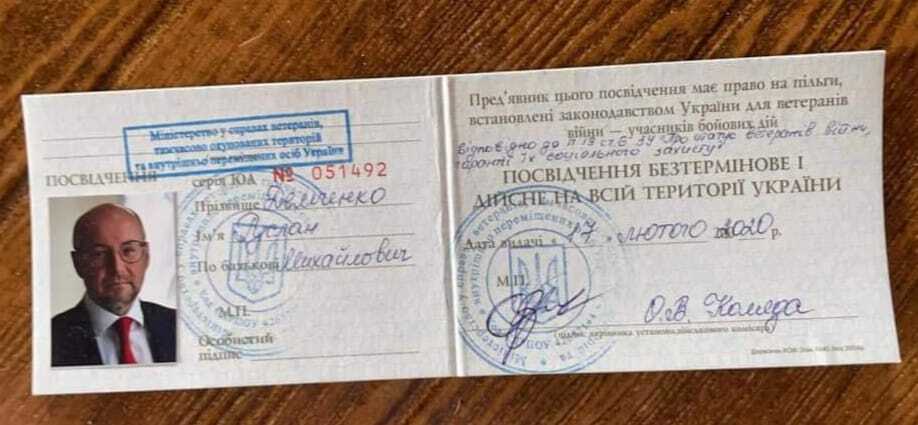 Міністерство у справах ветеранів,
тимчасово окупованих територій
та внутрішньо переміщених осіб України
ПОСВІДЧЕННЯ
серія ЮА № 051492
Прізвище Демченко
Ім'я Руслан
По батькові Михайлович
М.П.
Особистий
підпис
Пред'явник цього посвідчення має право на пільги,
встановлені законодавством України для ветеранів
війни — учасників бойових дій
відповідно до п 19 ст 6 ЗУ "Про статус ветеранів війни,
гарантії їх соціального захисту"
ПОСВІДЧЕННЯ БЕЗТЕРМІНОВЕ І
ДІЙСНЕ НА ВСІЙ ТЕРИТОРІЇ УКРАЇНИ
Дата видачі « 17 » лютого 2020 р.
М.П.
О.В. Коляда